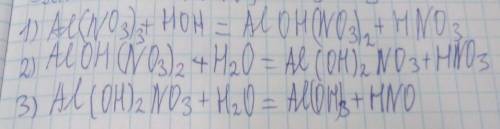 1) Al(NO₃)₃ + HOH = AlOH(NO₃)₂ + HNO₃
2) AlOH(NO₃)₂ + H₂O = Al(OH)₂NO₃ + HNO₃
3) Al(OH)₂NO₃ + H₂O = Al(OH)₃ + HNO